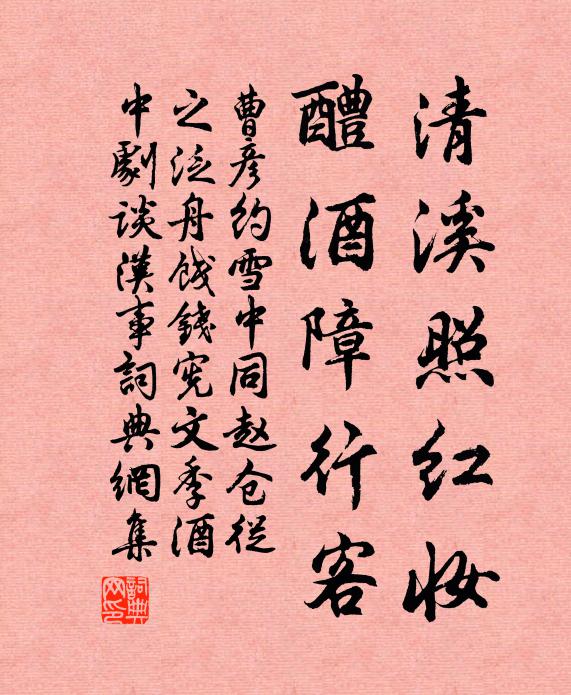 清溪照红妆
醴酒障行客
曹彦约雪中同赵仓从
之泛舟饯錢宪文季酒
中劇谈漢事詞典網集
詞典
网